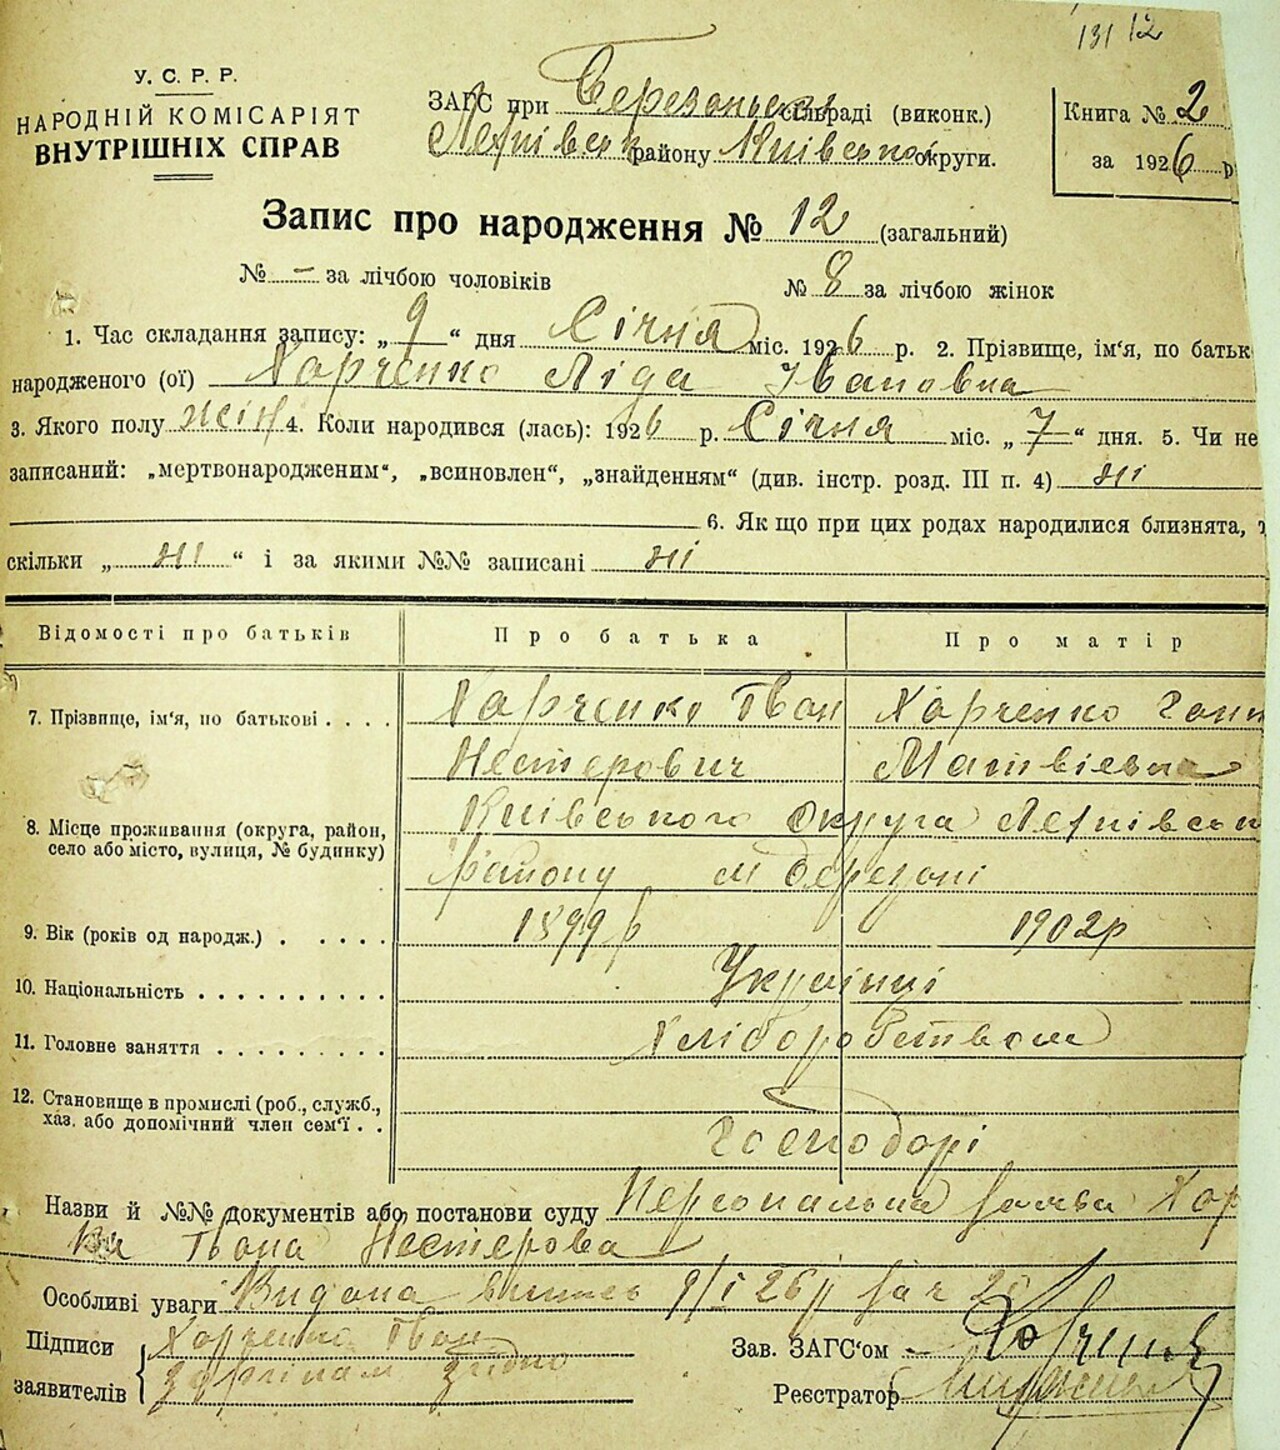 131 12
У. С. Р. Р.
НАРОДНІЙ КОМІСАРІЯТ
ВНУТРІШНІХ СПРАВ
ЗАГС при Березаньск сільраді (виконк.)
району Київської округи.
Книга № 2
за 1926 р
Запис про народження № 12 (загальний)
№ – за лічбою чоловіків
№ 8 за лічбою жінок
1. Час складання запису: „ 9 “ дня Січня міс. 1926 р. 2. Прізвище, ім‘я, по батьк
народженого (ої) Харченко Ліда Івановна
3. Якого полу жін 4. Коли народився (лась): 1926 р. Січня міс. „ 7 “ дня. 5. Чи не
записаний: „мертвонародженим“, „всиновлен“, „знайденням“ (див. інстр. розд. III п. 4) ні
6. Як що при цих родах народилися близнята,
скільки „ ні “ і за якими №№ записані ні
Відомості про батьків
Про батька
Про матір
7. Прізвище, ім‘я, по батькові . . . .
Харченко Іван
Нестерович
Харченко Ганн
Матвієвна
8. Місце проживання (округа, район,
село або місто, вулиця, № будинку)
Київського округа
району м Березані
9. Вік (років од народж.) . . . . .
1899 р
1902р
10. Національність . . . . . . . . . .
Українці
11. Головне заняття . . . . . . . . .
Хліборобством
12. Становище в промислі (роб., служб.,
хаз. або допомічний член сем‘ї . .
Господарі
Назви й №№ документів або постанови суду Персональна заява Хар
Івана Нестерова
Особливі уваги Видана випись 9/I 26р за № 20
Підписи
заявителів
Харченко Іван
Зав. ЗАГС‘ом
Реєстратор